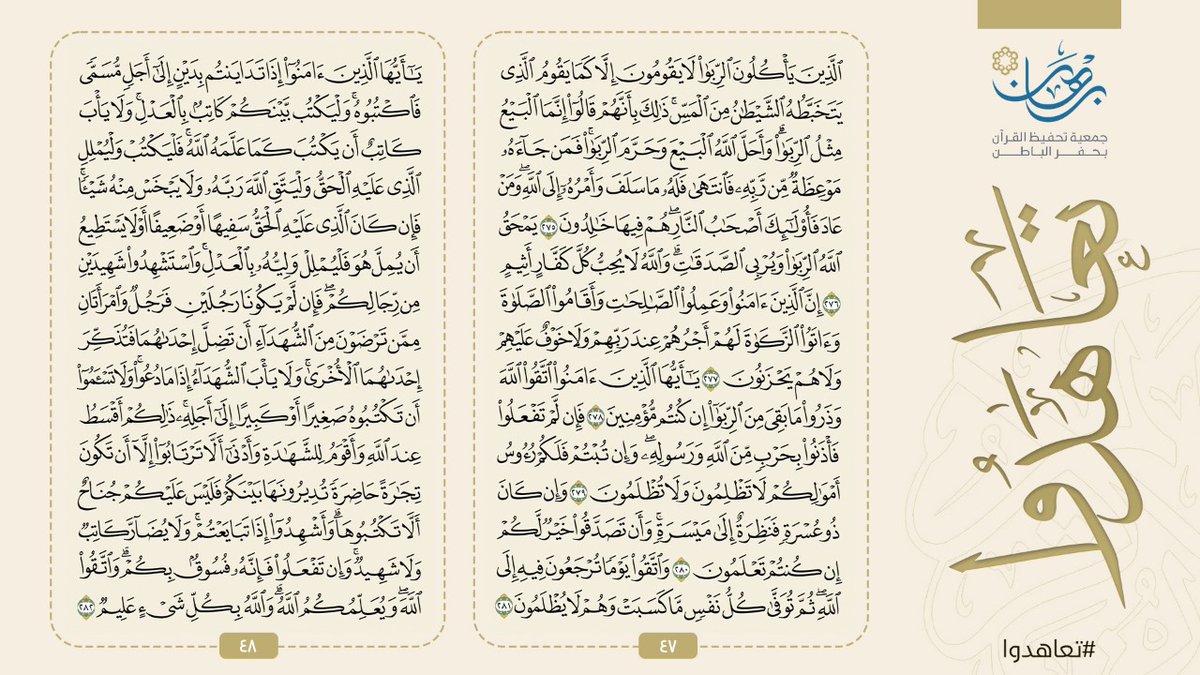 برهان
جمعية تحفيظ القرآن
بحفر الباطن
تعاهدوا
#تعاهدوا
ٱلَّذِينَ يَأۡكُلُونَ ٱلرِّبَوٰاْ لَا يَقُومُونَ إِلَّا كَمَا يَقُومُ ٱلَّذِي
يَتَخَبَّطُهُ ٱلشَّيۡطَٰنُ مِنَ ٱلۡمَسِّۚ ذَٰلِكَ بِأَنَّهُمۡ قَالُوٓاْ إِنَّمَا ٱلۡبَيۡعُ
مِثۡلُ ٱلرِّبَوٰاْۗ وَأَحَلَّ ٱللَّهُ ٱلۡبَيۡعَ وَحَرَّمَ ٱلرِّبَوٰاْۚ فَمَن جَآءَهُۥ
مَوۡعِظَةٞ مِّن رَّبِّهِۦ فَٱنتَهَىٰ فَلَهُۥ مَا سَلَفَ وَأَمۡرُهُۥٓ إِلَى ٱللَّهِۖ وَمَنۡ
عَادَ فَأُوْلَٰٓئِكَ أَصۡحَٰبُ ٱلنَّارِۖ هُمۡ فِيهَا خَٰلِدُونَ ٢٧٥ يَمۡحَقُ
ٱللَّهُ ٱلرِّبَوٰاْ وَيُرۡبِي ٱلصَّدَقَٰتِۗ وَٱللَّهُ لَا يُحِبُّ كُلَّ كَفَّارٍ أَثِيمٍ
٢٧٦ إِنَّ ٱلَّذِينَ ءَامَنُواْ وَعَمِلُواْ ٱلصَّٰلِحَٰتِ وَأَقَامُواْ ٱلصَّلَوٰةَ
وَءَاتَوُاْ ٱلزَّكَوٰةَ لَهُمۡ أَجۡرُهُمۡ عِندَ رَبِّهِمۡ وَلَا خَوۡفٌ عَلَيۡهِمۡ
وَلَا هُمۡ يَحۡزَنُونَ ٢٧٧ يَٰٓأَيُّهَا ٱلَّذِينَ ءَامَنُواْ ٱتَّقُواْ ٱللَّهَ
وَذَرُواْ مَا بَقِيَ مِنَ ٱلرِّبَوٰٓاْ إِن كُنتُم مُّؤۡمِنِينَ ٢٧٨ فَإِن لَّمۡ تَفۡعَلُواْ
فَأۡذَنُواْ بِحَرۡبٖ مِّنَ ٱللَّهِ وَرَسُولِهِۦۖ وَإِن تُبۡتُمۡ فَلَكُمۡ رُءُوسُ
أَمۡوَٰلِكُمۡ لَا تَظۡلِمُونَ وَلَا تُظۡلَمُونَ ٢٧٩ وَإِن كَانَ
ذُو عُسۡرَةٖ فَنَظِرَةٌ إِلَىٰ مَيۡسَرَةٖۚ وَأَن تَصَدَّقُواْ خَيۡرٞ لَّكُمۡ
إِن كُنتُمۡ تَعۡلَمُونَ ٢٨٠ وَٱتَّقُواْ يَوۡمٗا تُرۡجَعُونَ فِيهِ إِلَى
ٱللَّهِۖ ثُمَّ تُوَفَّىٰ كُلُّ نَفۡسٖ مَّا كَسَبَتۡ وَهُمۡ لَا يُظۡلَمُونَ ٢٨١
٤٧
يَٰٓأَيُّهَا ٱلَّذِينَ ءَامَنُوٓاْ إِذَا تَدَايَنتُم بِدَيۡنٍ إِلَىٰٓ أَجَلٖ مُّسَمّٗى
فَٱكۡتُبُوهُۚ وَلۡيَكۡتُب بَّيۡنَكُمۡ كَاتِبُۢ بِٱلۡعَدۡلِۚ وَلَا يَأۡبَ
كَاتِبٌ أَن يَكۡتُبَ كَمَا عَلَّمَهُ ٱللَّهُۚ فَلۡيَكۡتُبۡ وَلۡيُمۡلِلِ
ٱلَّذِي عَلَيۡهِ ٱلۡحَقُّ وَلۡيَتَّقِ ٱللَّهَ رَبَّهُۥ وَلَا يَبۡخَسۡ مِنۡهُ شَيۡـٔٗاۚ
فَإِن كَانَ ٱلَّذِي عَلَيۡهِ ٱلۡحَقُّ سَفِيهًا أَوۡ ضَعِيفًا أَوۡ لَا يَسۡتَطِيعُ
أَن يُمِلَّ هُوَ فَلۡيُمۡلِلۡ وَلِيُّهُۥ بِٱلۡعَدۡلِۚ وَٱسۡتَشۡهِدُواْ شَهِيدَيۡنِ
مِن رِّجَالِكُمۡۖ فَإِن لَّمۡ يَكُونَا رَجُلَيۡنِ فَرَجُلٞ وَٱمۡرَأَتَانِ
مِمَّن تَرۡضَوۡنَ مِنَ ٱلشُّهَدَآءِ أَن تَضِلَّ إِحۡدَىٰهُمَا فَتُذَكِّرَ
إِحۡدَىٰهُمَا ٱلۡأُخۡرَىٰۚ وَلَا يَأۡبَ ٱلشُّهَدَآءُ إِذَا مَا دُعُواْۚ وَلَا تَسۡـَٔمُوٓاْ
أَن تَكۡتُبُوهُ صَغِيرًا أَوۡ كَبِيرًا إِلَىٰٓ أَجَلِهِۦۚ ذَٰلِكُمۡ أَقۡسَطُ
عِندَ ٱللَّهِ وَأَقۡوَمُ لِلشَّهَٰدَةِ وَأَدۡنَىٰٓ أَلَّا تَرۡتَابُوٓاْ إِلَّآ أَن تَكُونَ
تِجَٰرَةً حَاضِرَةٗ تُدِيرُونَهَا بَيۡنَكُمۡ فَلَيۡسَ عَلَيۡكُمۡ جُنَاحٌ
أَلَّا تَكۡتُبُوهَاۗ وَأَشۡهِدُوٓاْ إِذَا تَبَايَعۡتُمۡۚ وَلَا يُضَآرَّ كَاتِبٞ
وَلَا شَهِيدٞۚ وَإِن تَفۡعَلُواْ فَإِنَّهُۥ فُسُوقُۢ بِكُمۡۗ وَٱتَّقُواْ
ٱللَّهَۖ وَيُعَلِّمُكُمُ ٱللَّهُۗ وَٱللَّهُ بِكُلِّ شَيۡءٍ عَلِيمٞ ٢٨٢
٤٨